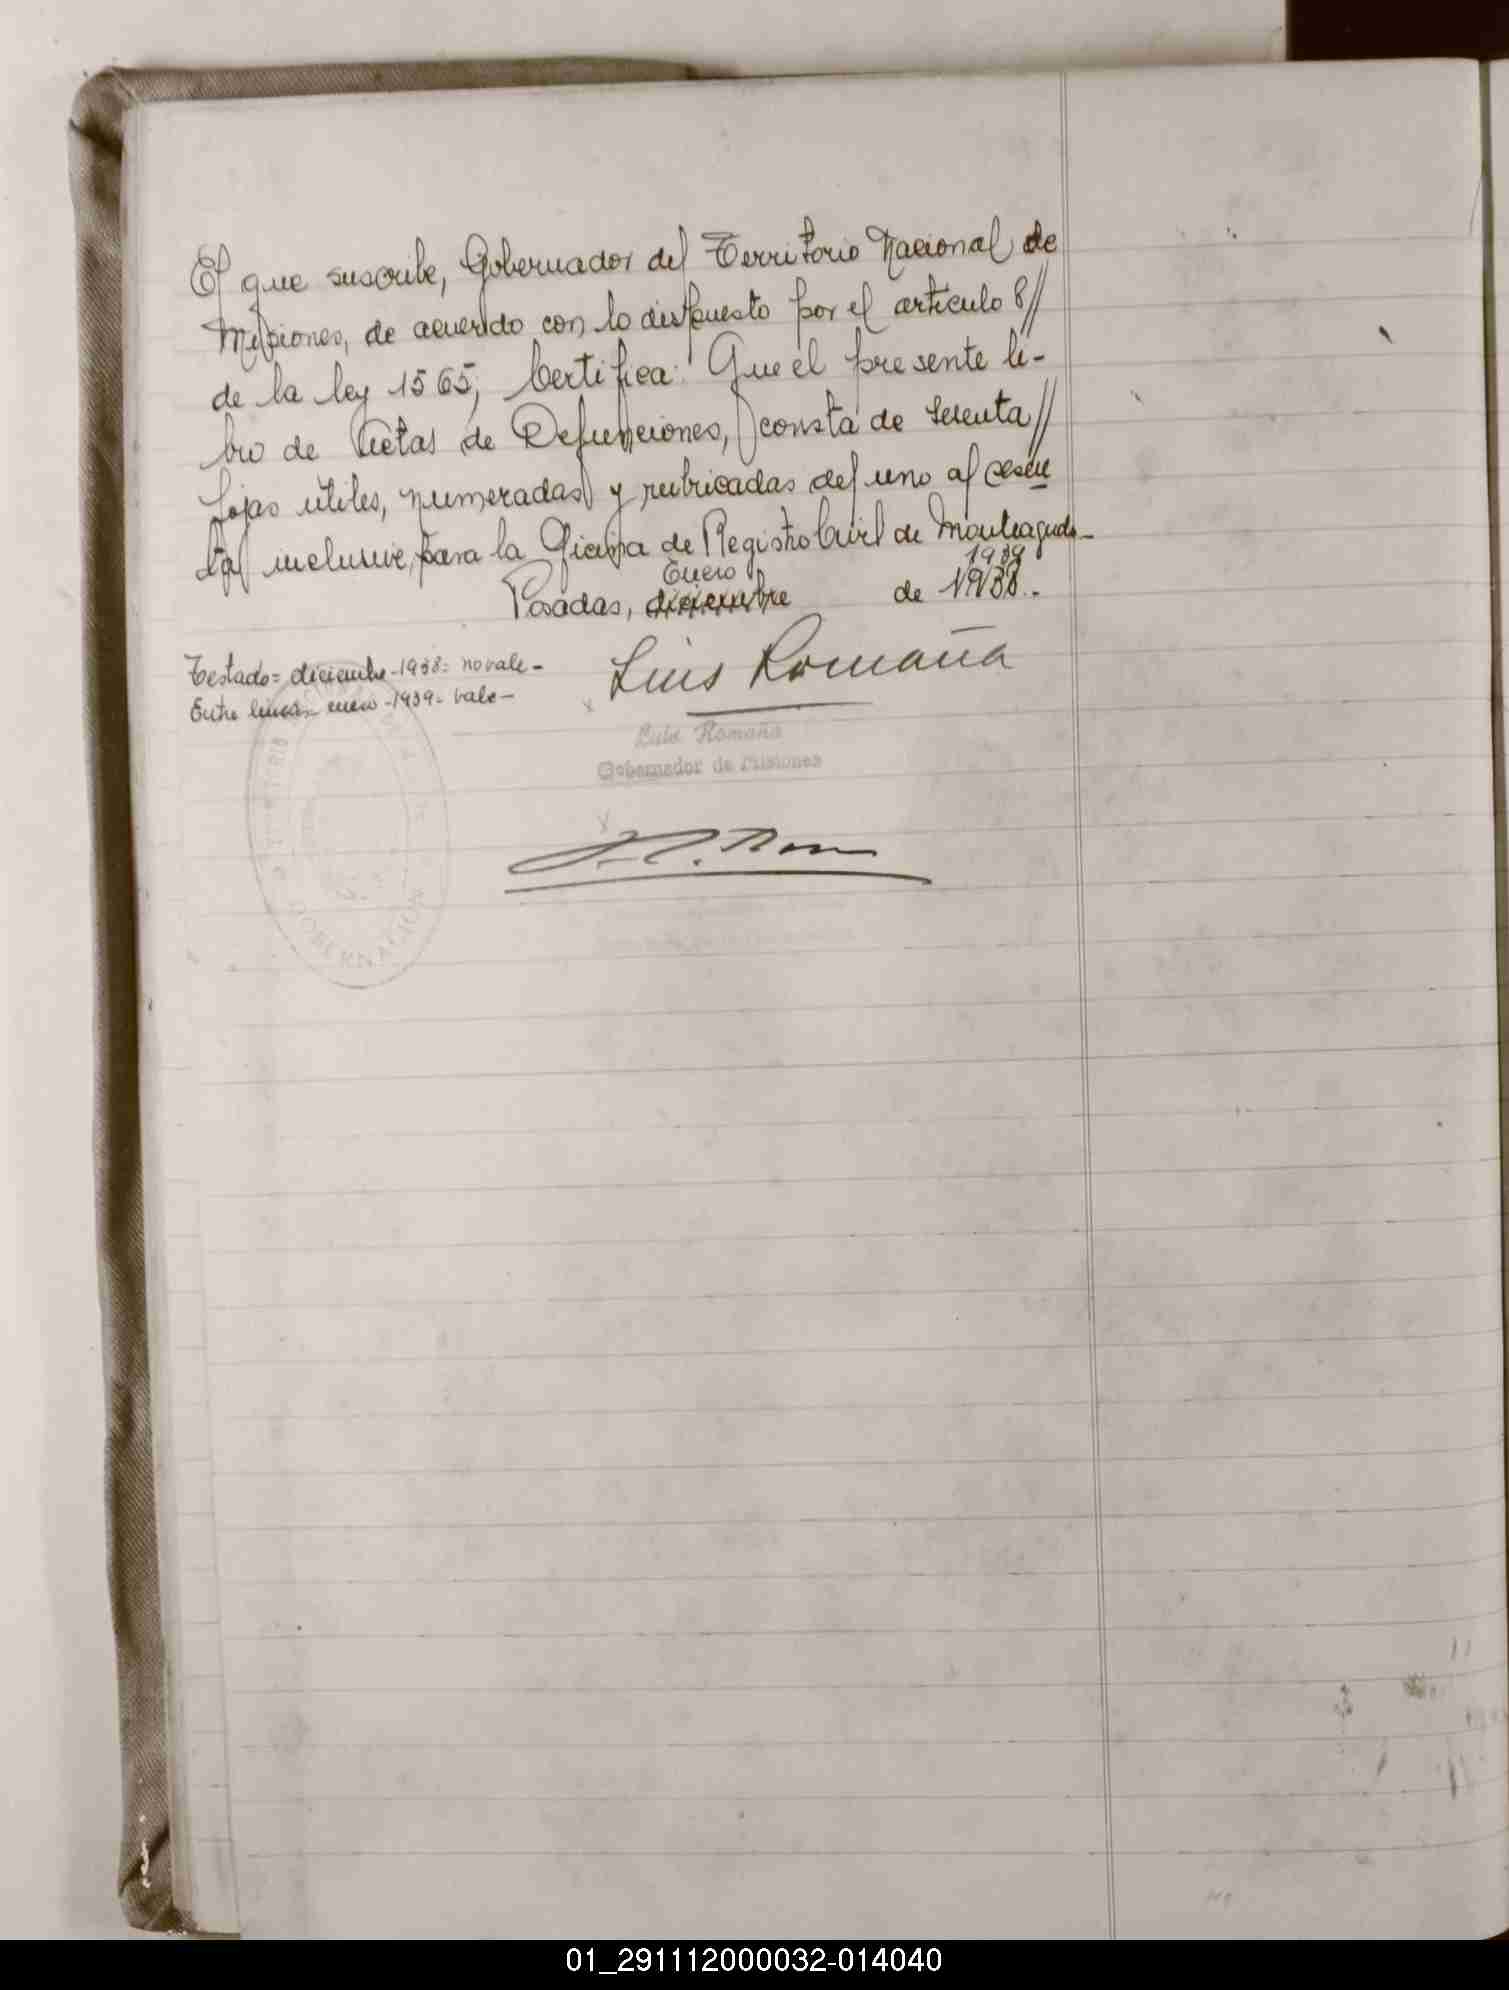 El que suscribe, Gobernador del Territorio Nacional de
Misiones, de acuerdo con lo dispuesto por el artículo 8//
de la ley 1565, Certifica: Que el presente li-
bro de Actas de Defunciones, consta de sesenta//
fojas útiles, numeradas y rubricadas del uno al sesen
ta inclusive, para la Oficina de Registro Civil de Monteagudo-
Enero 1939
Posadas, diciembre de 1938.-
Testado= diciembre-1938= no vale-
Entre líneas- enero-1939- vale-
Luis Romaña
Luis Romaña
Gobernador de Misiones
GOBERNACION
01_291112000032-014040